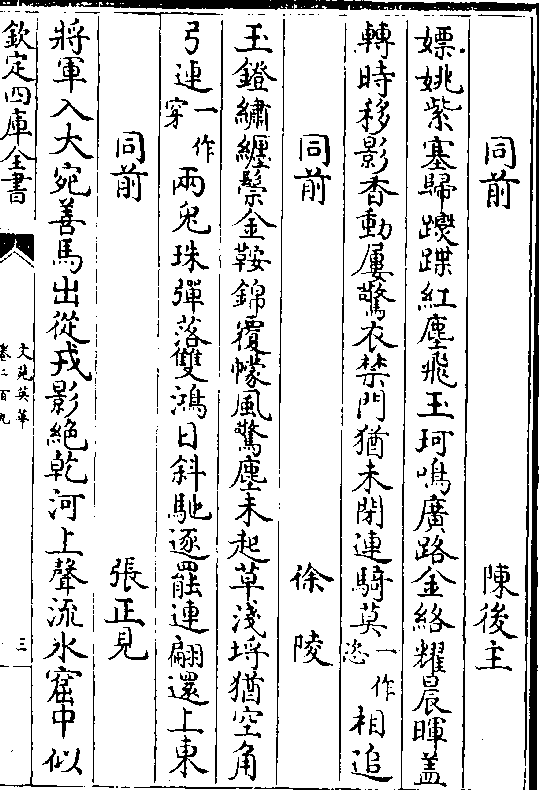 同前 陳後主
嫖姚紫塞歸蹀躞紅塵飛玉珂鳴廣路金絡耀晨暉蓋
轉時移影香動屢驚衣禁門猶未閉連騎莫一作恣相追
同前 徐陵
玉鐙繡纏騣金鞍錦覆幪風驚塵未起草淺埒猶空角
弓連一作穿兩兔珠彈落雙鴻日斜馳逐罷連翩還上東
同前 張正見
將軍入大宛善馬出從戎影絕乾河上聲流水窟中似
欽定四庫全書
文苑英華
卷二百九
三